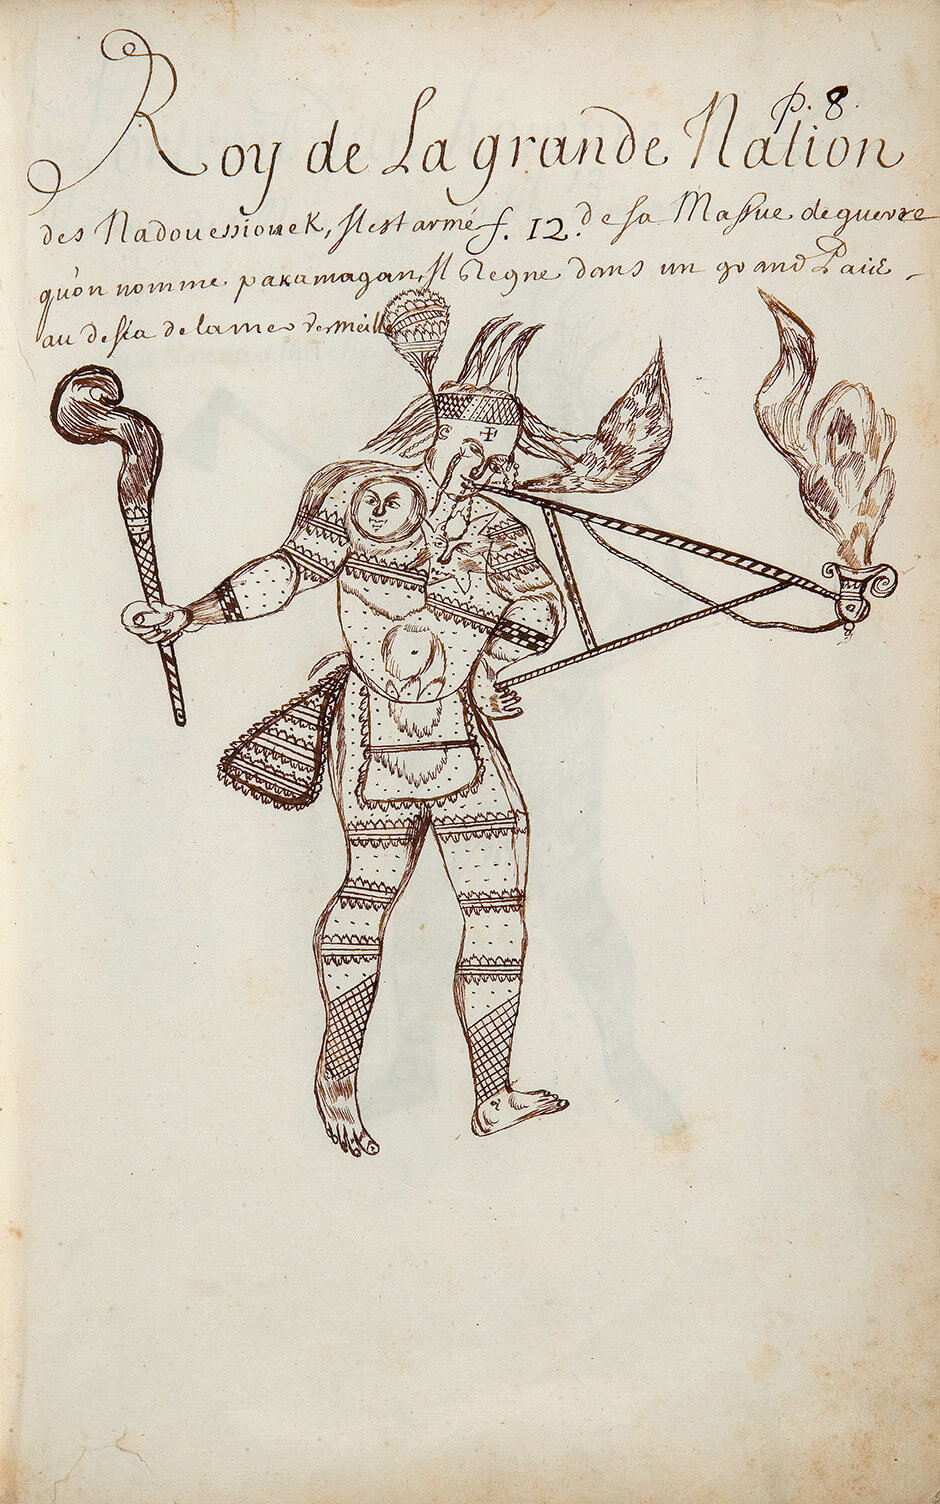 p. 8.
Roy de La grande Nation
des Nadouessiouek, Il est armé f. 12. de sa Massue de guerre
qu'on nomme pakamagan, Il Regne dans un grand Païs
au desia de la mer vermeille